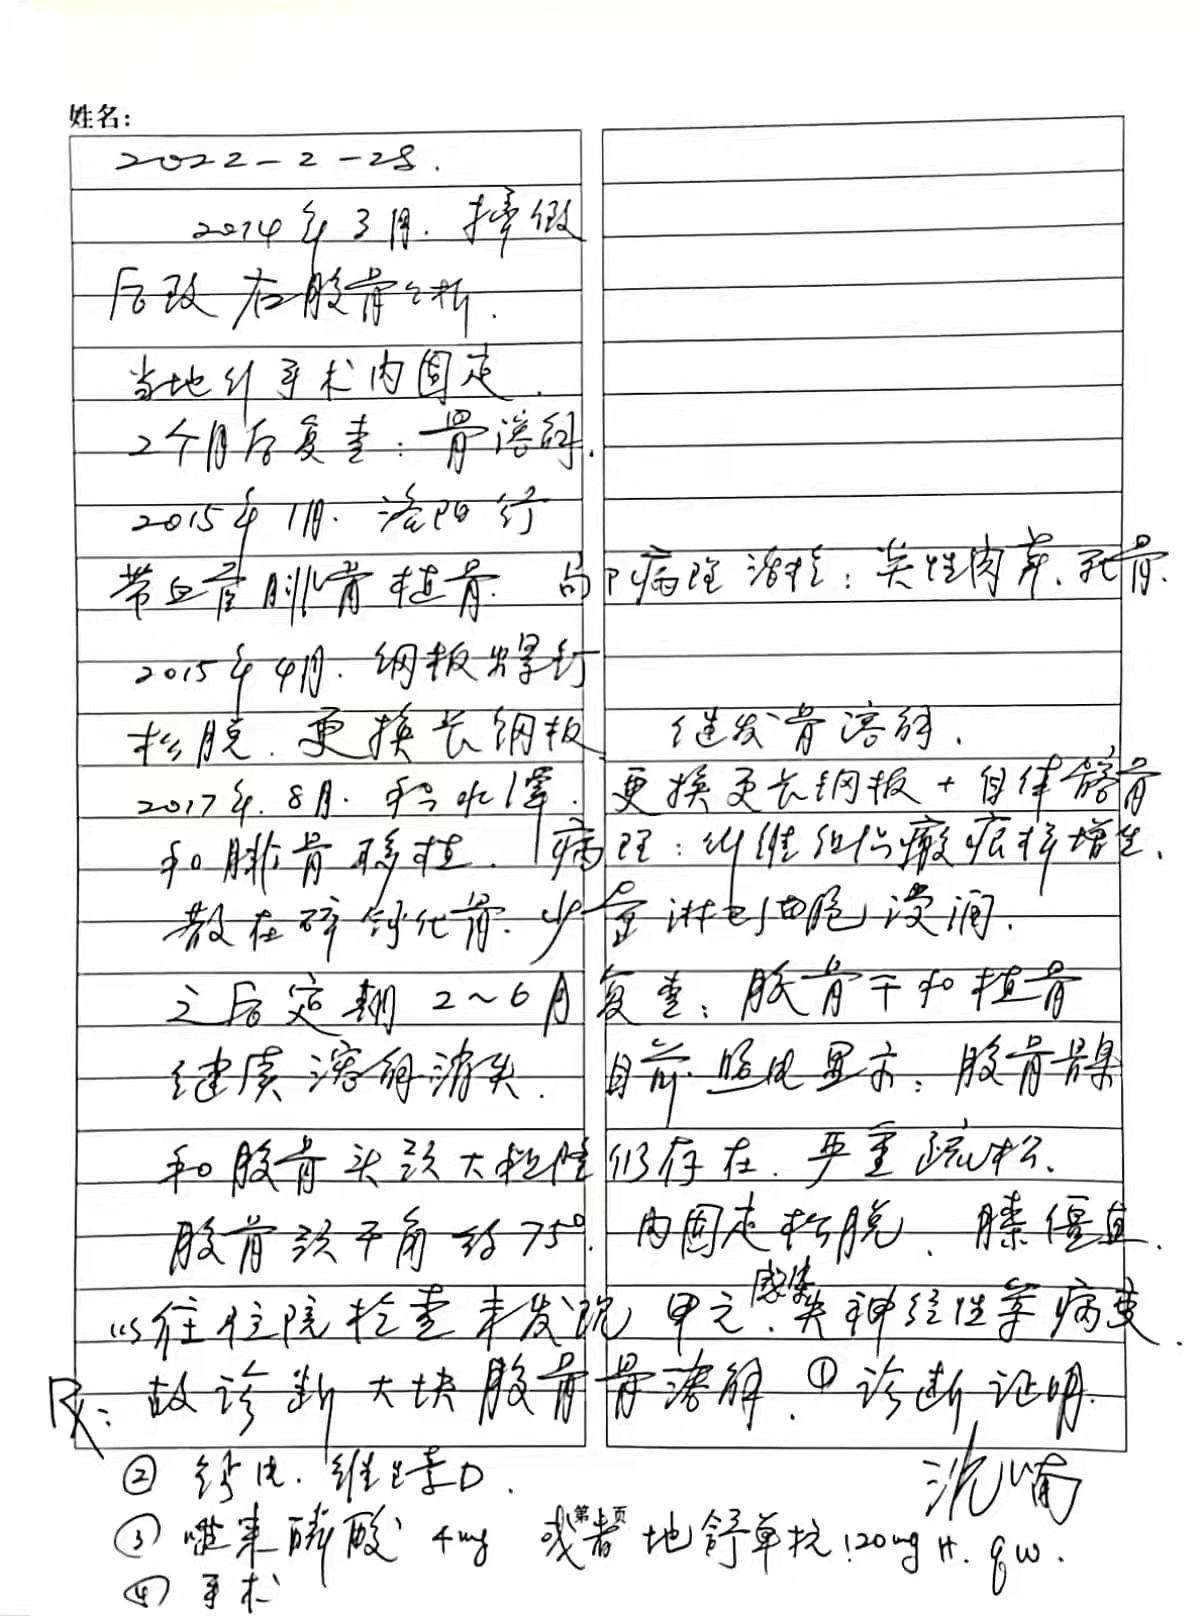 姓名:
2022-2-28.
2014年3月. 摔倒
后致右股骨骨折.
当地行手术内固定.
2个月后复查:骨溶解.
2015年1月. 洛阳行
带血管腓骨植骨. 局部病理活检:炎性肉芽、死骨.
2015年4月. 钢板螺钉
松脱. 更换长钢板 继发骨溶解.
2017年.8月. 积水潭. 更换更长钢板+自体髂骨
和腓骨移植. 病理:纤维组织瘢痕样增生、
散在碎钙化骨.少量淋巴细胞浸润.
之后定期2~6月复查:股骨干和植骨
继续溶解消失. 目前照片显示:股骨髁
和股骨头颈大粗隆仍存在.严重疏松.
股骨颈干角约75°. 内固定松脱、膝僵直.
以往住院检查未发现甲亢、感染、神经性等病变.
Rx: 故诊断大块股骨骨溶解. ① 诊断证明.
② 钙片. 维生素D.
③ 唑来膦酸 4mg 或者地舒单抗120mg H. qw.
第1页
④ 手术